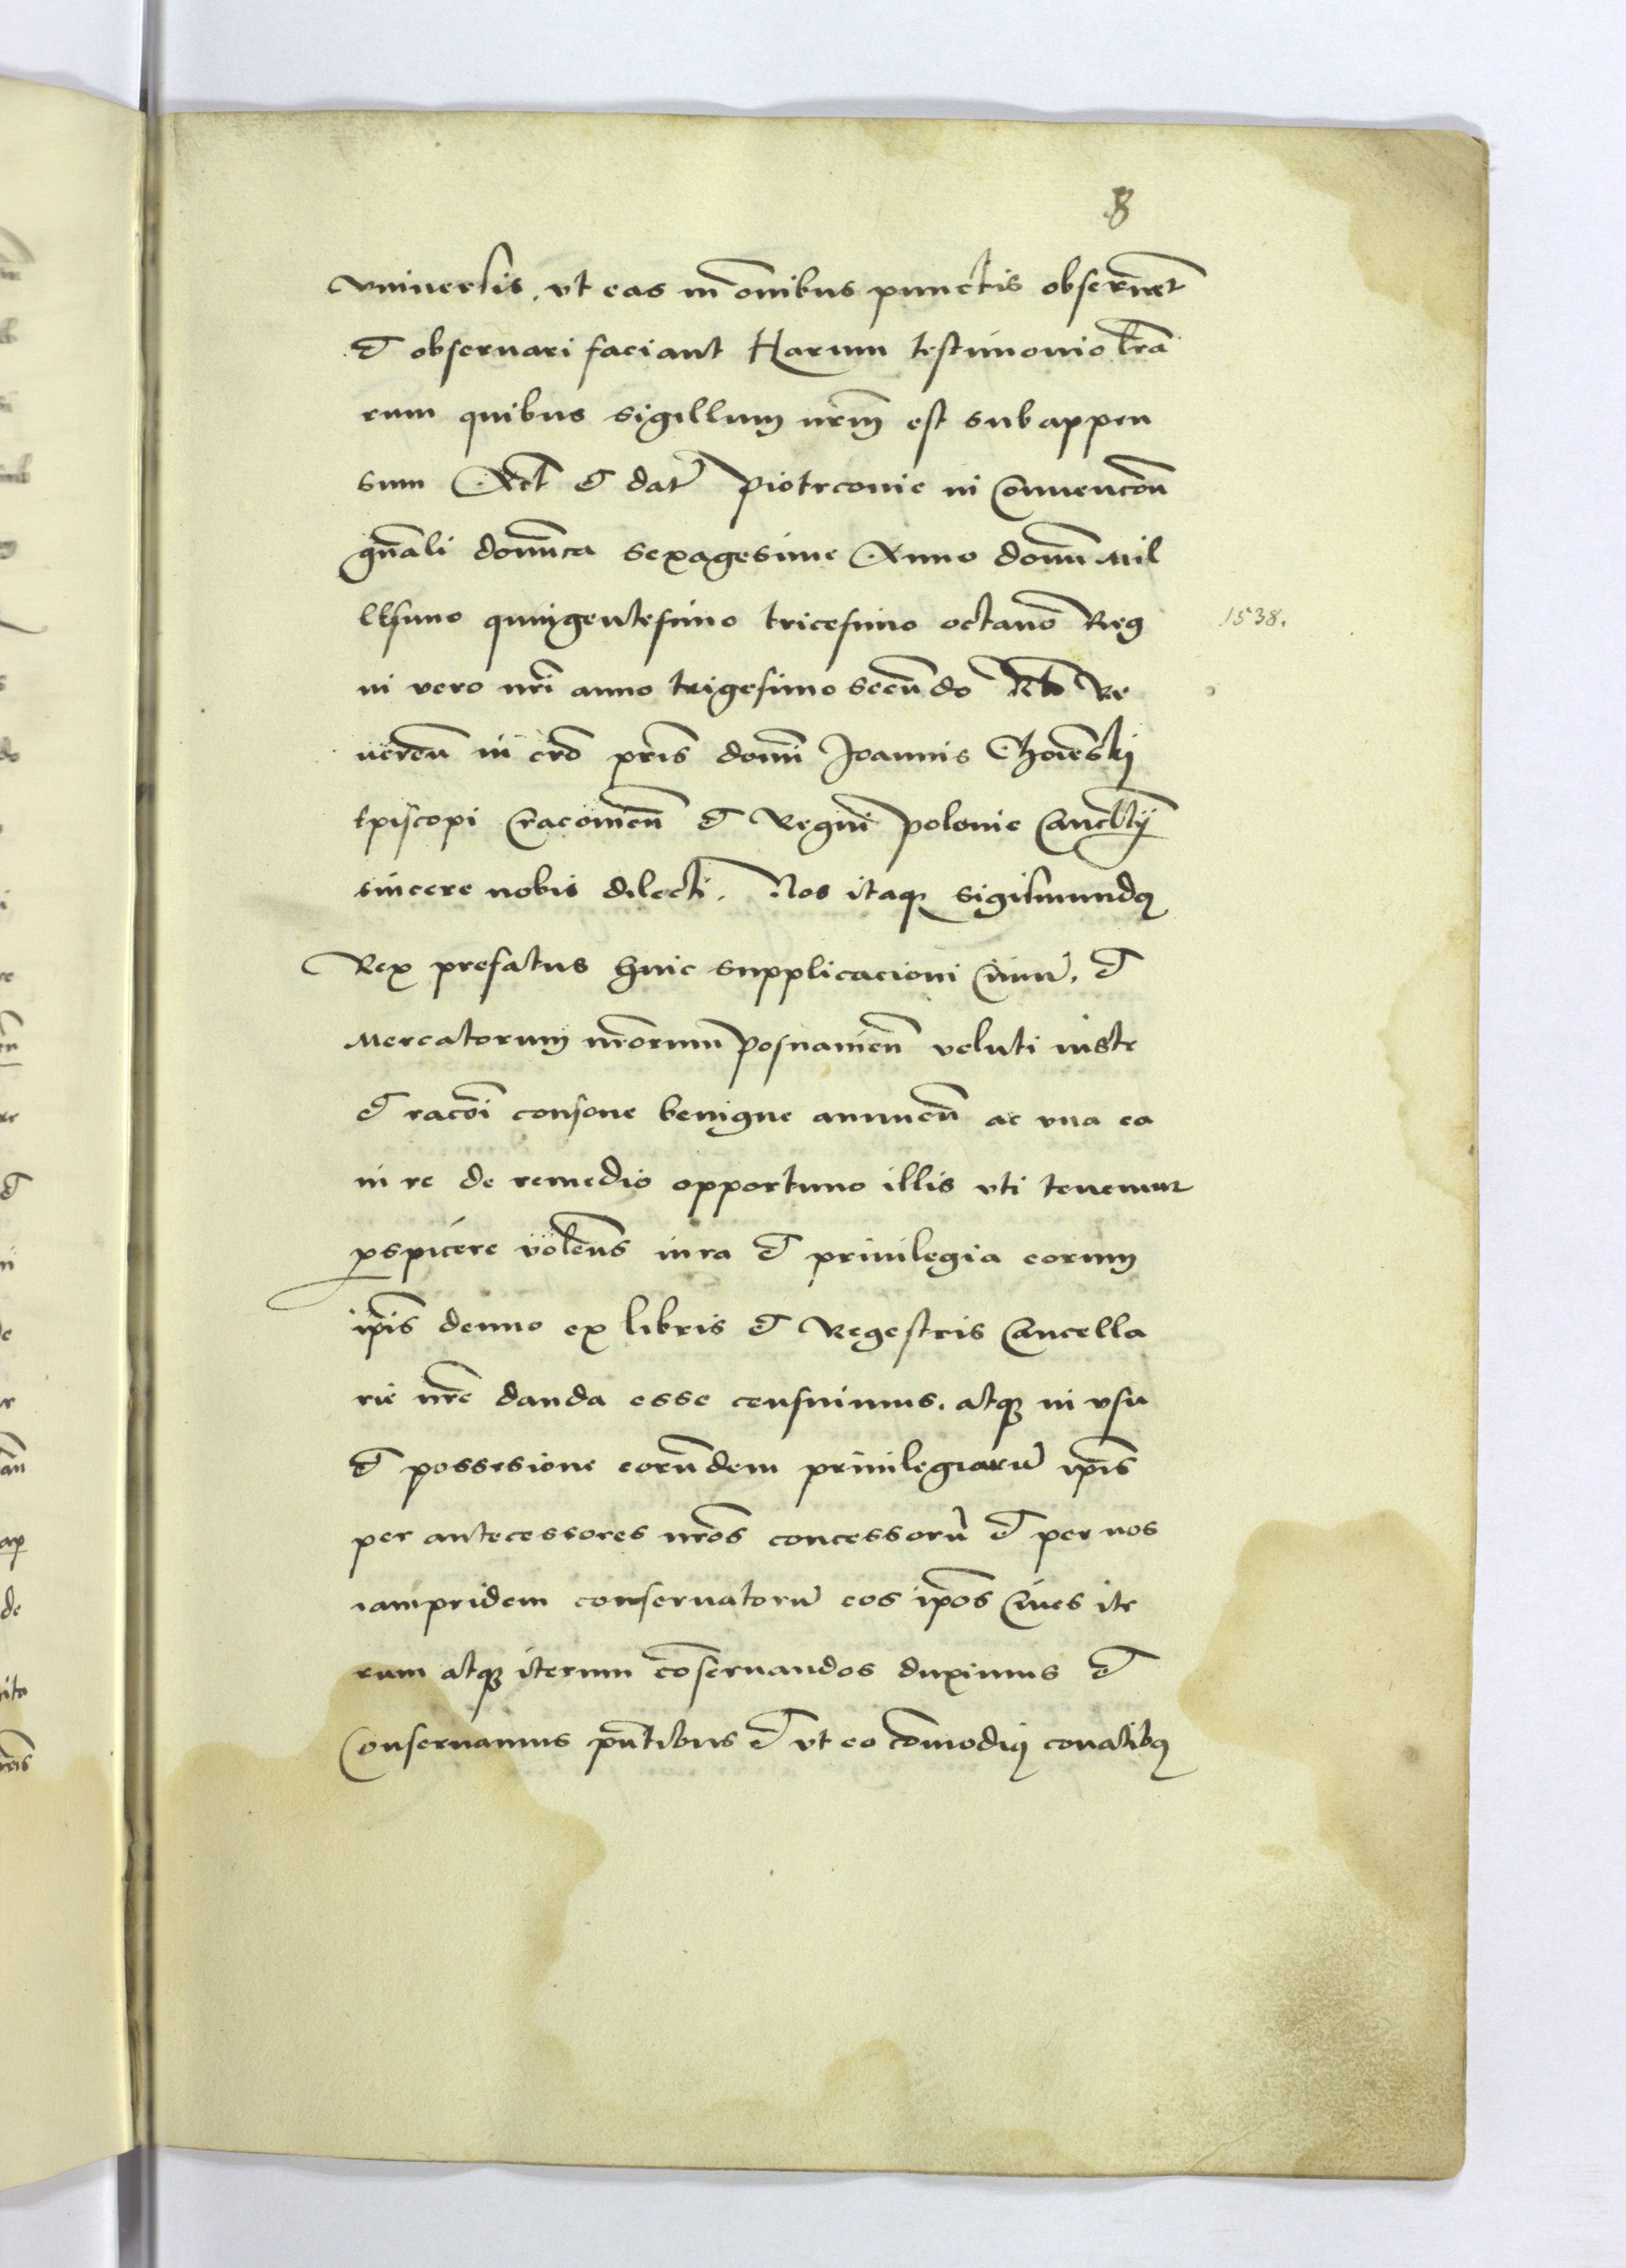 8
vniuersis, vt eas in om̅ibus punctis obseruēt
et obseruari faciant Harum testimonio lr̅a
rum quibus sigillum nr̅m est subappen
sum Act̅ et dat̅ Piotrconie in Conuencōn
gn̅ali domīca sexagesime Anno domī Mil
llesimo quingentesimo tricesimo octauo Reg
1538.
ni vero nr̅i anno trigesimo secūdo Re
uerēn in cr̅o pr̅is domī Joannis Choieński
Episcopi Cracouien̅ et Regni Polonie Cancllȳ
sincere nobis dilecti. Nos itaq̨ Sigismundq
Rex prefatus huic supplicacioni Ciuiū, et
Mercatorum nr̅orum Posnanien̅ veluti iuste
et racōi consone benigne annuen̅ ac vna ea
in re de remedio opportuno illis vti tenemur
ꝓspicere volen̅s iura et priuilegia eorum
ip̅is denuo ex libris et Regestris Cancella
rie nr̅e danda esse censuimus. atq̨ in vsu
et possesione eorūdem priuilegiarū ip̅is
per antecessores nr̅os concessorū et per nos
iampridem conseruatorū eos ip̅os Ciues ite
rum atq̨ iterum cōseruandos duximus et
Conseruamus pn̅tibus et vt eo cōmodiq conatibq